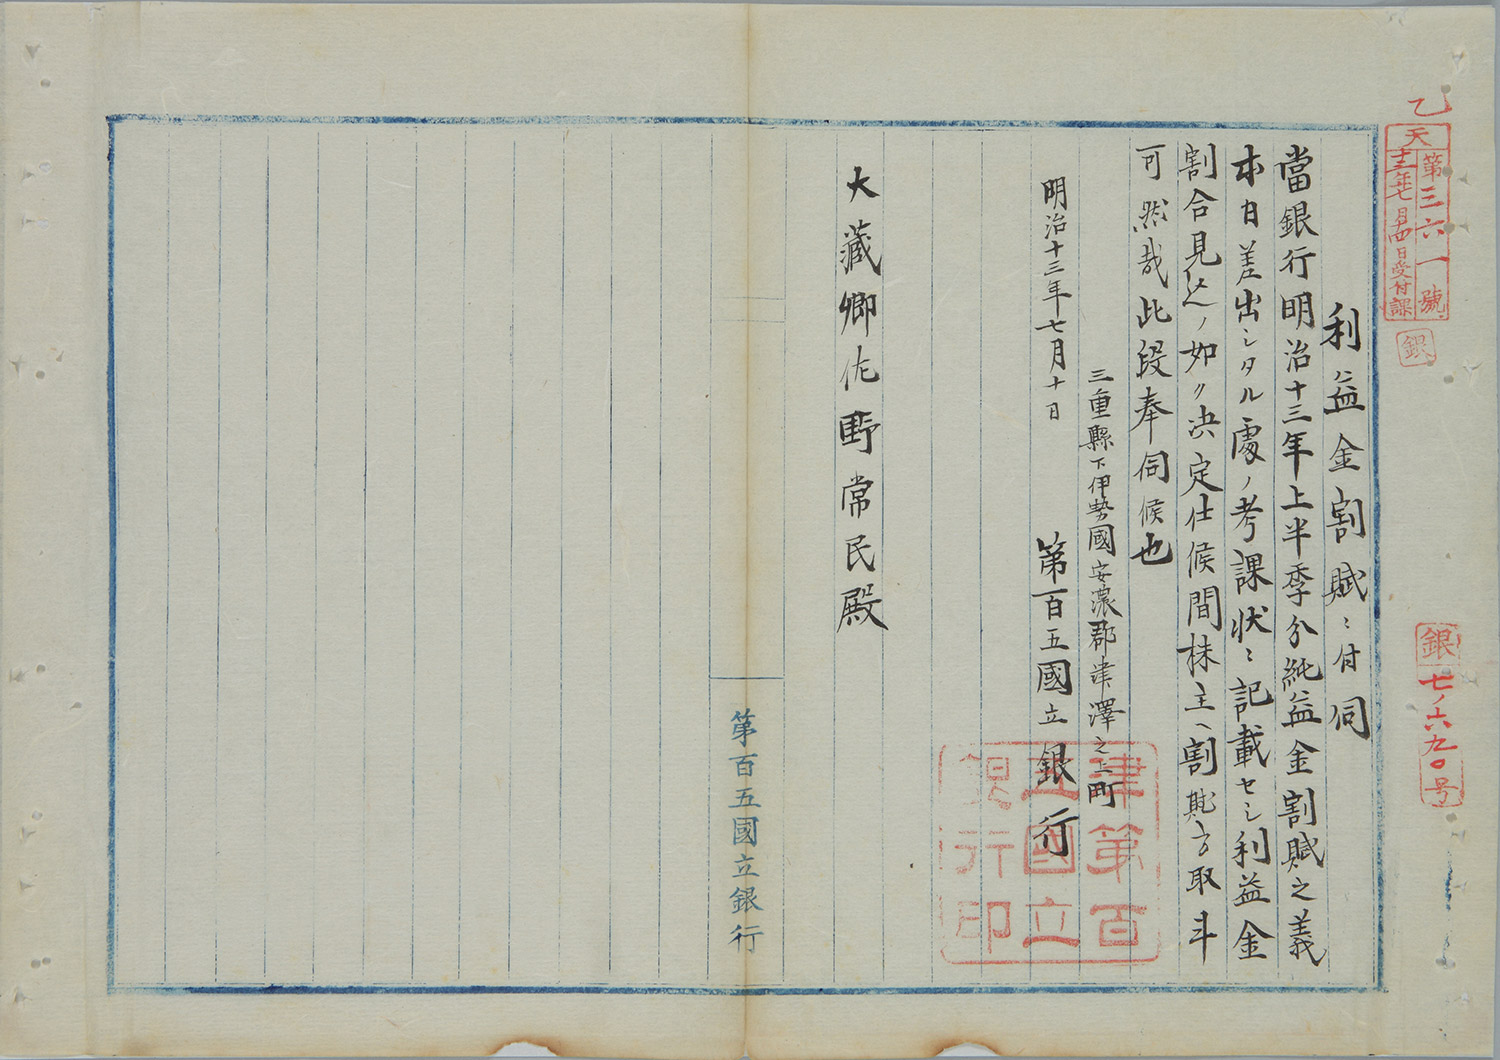 乙
天
第三六一號
十三年七月十四日受付課
銀
銀
七ノ六九〇号
利益金割賦ニ付伺
當銀行明治十三年上半季分純益金割賦之義
本日差出シタル處ノ考課状ニ記載セシ利益金
割合見込ノ如ク決定仕候間株主ヘ割賦方取斗
可然哉此段奉伺候也
三重縣下伊勢國安濃郡津澤之上町
第百五國立銀行
明治十三年七月十日
津第百
五國立
銀行印
大藏卿佐野常民殿
第百五國立銀行